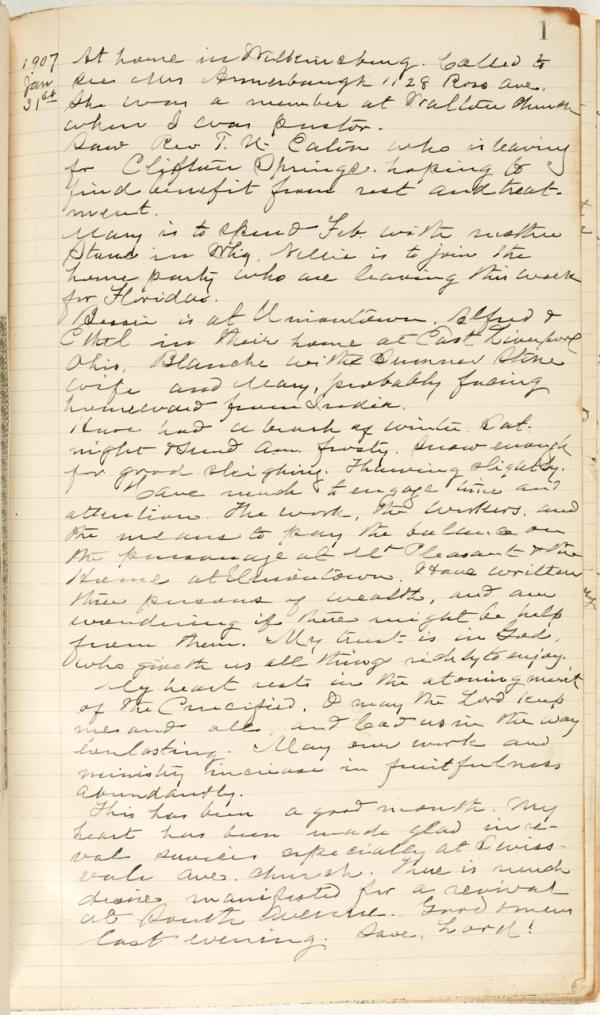 1
1907 Jan 31st
At home in Wilkinsburg. Called to
see Mrs Armerbaugh 1128 Ross Ave.
She was a member at Walton Church
when I was pastor.
Saw Rev T. N. Eaton who is leaving
for Clifton Springs. hoping to
find benefit from rest and treat-
ment.
Mary is to spend Feb. with mother
Stone in Whg. Nellie is to join the
home party who are leaving this week
for Florida.
Bessie is at Uniontown. Alfred &
Ethel in their home at East Liverpool
Ohio, Blanche with Sumner Stone
wife and Mary, probably facing
homeward from India.
Have had a brush of winter. Sat.
night & Sund am. frosty. Snow enough
for good sleighing. Thawing slightly.
Have much to engage time and
attention. The work, the workers, and
the means to pay the balance on
the parsonage at Mt Pleasant & the
Home at Uniontown. Have written
three persons of wealth, and am
wondering if there might be help
from them. My trust is in God,
who giveth us all things richly to enjoy.
My heart rests in the atoning merit
of the Crucified. O may the Lord keep
me and all, and lead us in the way
everlasting. May our work and
ministry increase in fruitfulness
abundantly.
This has been a good month. My
heart has been made glad in re-
val services especially at Swiss-
vale ave. church. There is much
desire manifested for a revival
at South Avenue. Good omens
last evening. Save, Lord!